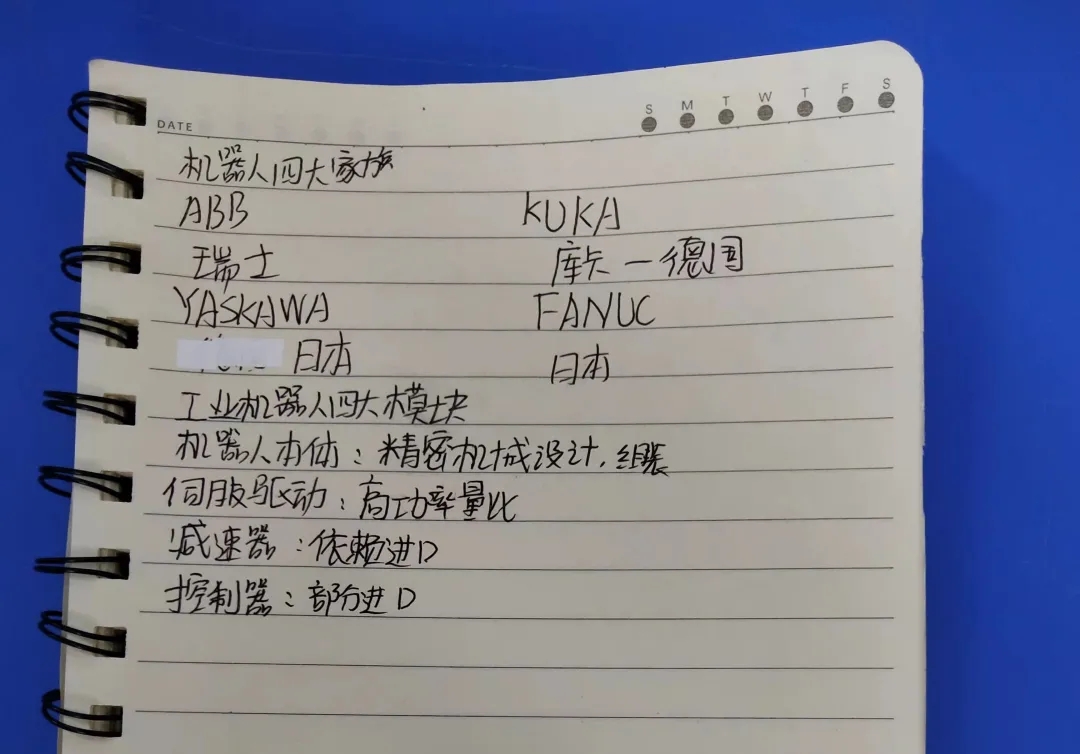 DATE S M T W T F S
机器人四大家族
ABB KUKA
瑞士 库卡一德国
YASKAWA FANUC
日本 日本
工业机器人四大模块
机器人本体：精密机械设计、组装
伺服驱动：高功率量比
减速器：依赖进口
控制器：部分进口